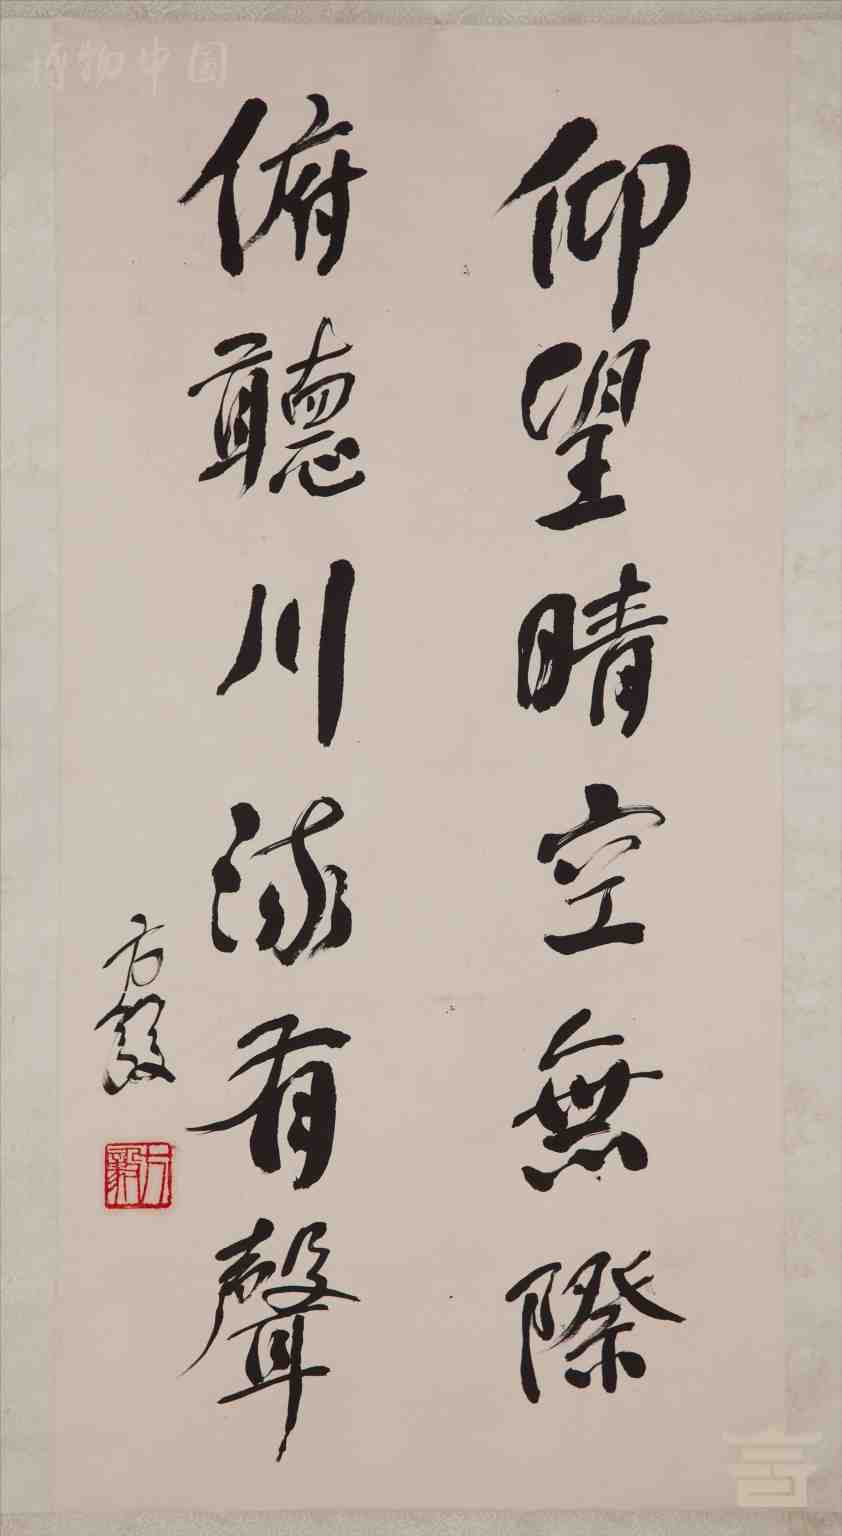 仰望晴空無際
俯聽川流有聲
方毅
方毅
博物中国